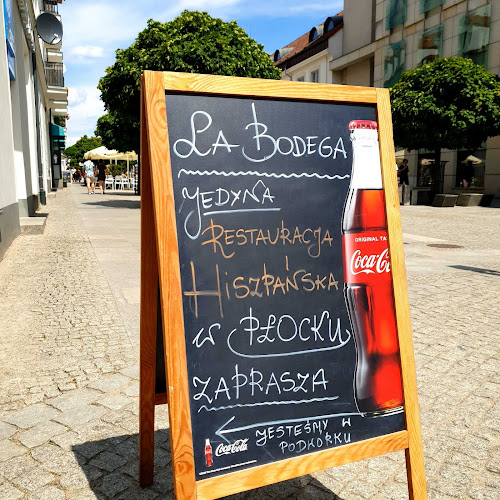 La Bodega
Jedyna
Restauracja
i
Hiszpańska
w Płocku
zaprasza
Jesteśmy w
podwórku
ORIGINAL TA
Coca-Co
Coca-Cola